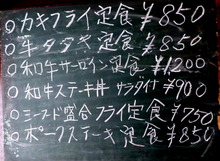 ○カキフライ定食 ¥850
○牛タタキ定食 ¥850
○和牛サーロイン定食 ¥1200
○和牛ステーキ丼 サラダ付 ¥900
○シーフード盛合フライ定食 ¥750
○ポークステーキ定食 ¥850